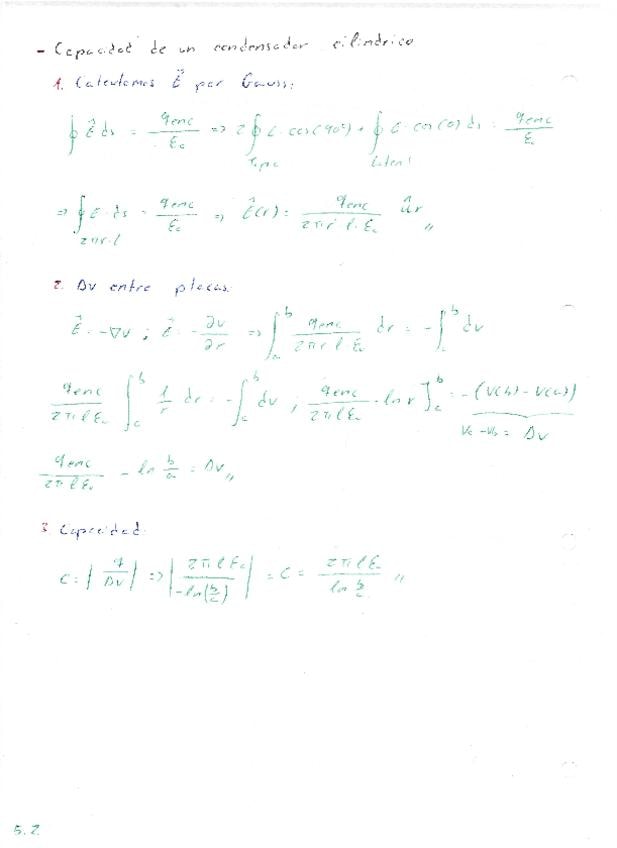 - Capacidad de un condensador cilindrico
1. Calculamos E⃗ por Gauss:
∮ E⃗ ds = qenc/ε₀ => 2∮ E · cos(90°) + ∮ E · cos(0) ds = qenc/ε₀
Tapa Lateral
=> ∮ E · ds = qenc/ε₀ => E⃗(r) = qenc/(2πr · l · ε₀) ûr //
2πr·l
2. ΔV entre placas:
E⃗ = -∇V ; E⃗ = -∂V/∂r => ∫ₐᵇ qenc/(2πr l ε₀) dr = -∫ₐᵇ dV
qenc/(2πlε₀) ∫ₐᵇ 1/r dr = -∫ₐᵇ dV ; qenc/(2πlε₀) · ln r]ₐᵇ = -(V(b) - V(a))
Va - Vb = ΔV
qenc/(2πlε₀) - ln b/a = ΔV //
3. Capacidad:
C = |q/ΔV| => |2πlε₀/(-ln(b/a))| = C = 2πlε₀/(ln b/a) //
5.2